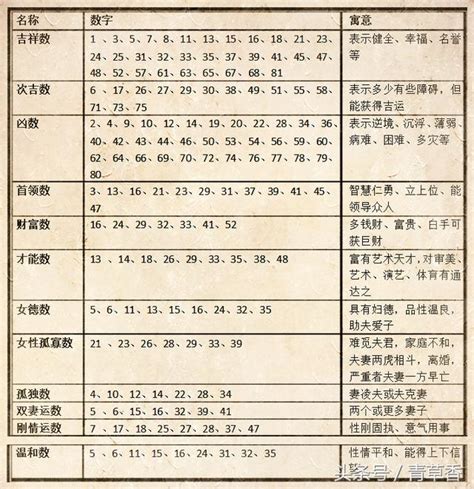 名称 数字 寓意
吉祥数 1、3、5、7、8、11、13、15、16、18、21、23、 表示健全、幸福、名誉
24、25、31、32、33、35、37、39、41、45、47、 等
48、52、57、61、63、65、67、68、81
次吉数 6、17、26、27、29、30、38、49、51、55、58、 表示多少有些障碍，但
71、73、75 能获得吉运
凶数 2、4、9、10、12、14、19、20、22、28、34、36、 表示逆境、沉浮、薄弱、
40、42、43、44、46、50、53、54、56、59、60、 病难、困难、多灾等
62、64、66、69、70、72、74、76、77、78、79、
80
首领数 3、13、16、21、23、29、31、37、39、41、45、 智慧仁勇、立上位、能
47 领导众人
财富数 16、24、29、32、33、41、52 多钱财、富贵、白手可
获巨财
才能数 13、14、18、26、29、33、35、38、48 富有艺术天才，对审美、
艺术、演艺、体育有通
达之
女德数 5、6、11、13、15、16、24、32、35 具有妇德，品性温良，
助夫爱子
女性孤寡数 21、23、26、28、29、33、39 难觅夫君，家庭不和，
夫妻两虎相斗，离婚，
严重者夫妻一方早亡
孤独数 4、10、12、14、22、28、34 妻凌夫或夫克妻
双妻运数 5、6、15、16、32、39、41 两个或更多妻子
刚情运数 7、17、18、27、28、37、47 性刚固执、意气用事
温和数 5、6、11、15、16、24、31、32、35 性情平和、能得上下信
头条号／青草香